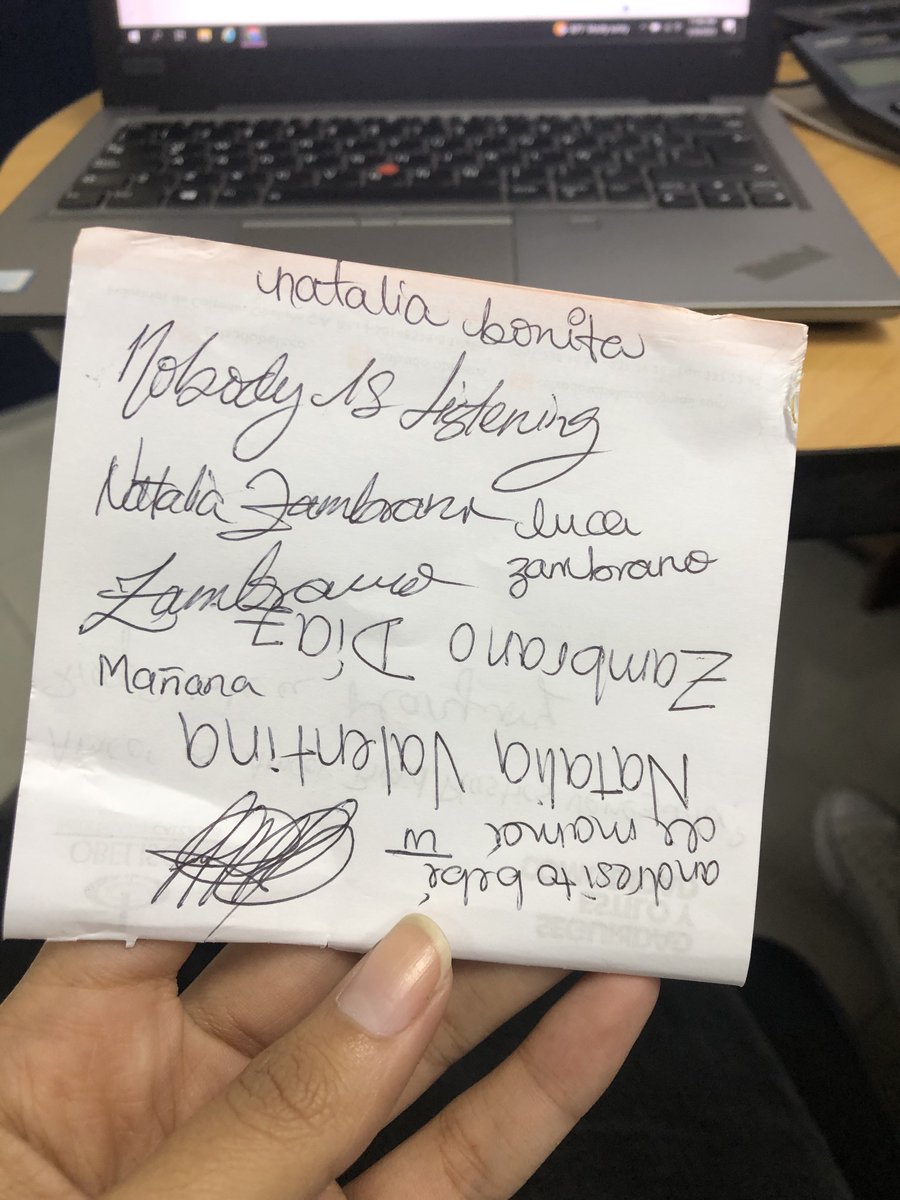 natalia bonita
Nobody is listening
Natalia Zambrano luca
zambrano
Zambrano
Zambrano Díaz
Mañana
Natalia Valentina
andresito bebé
de mamá